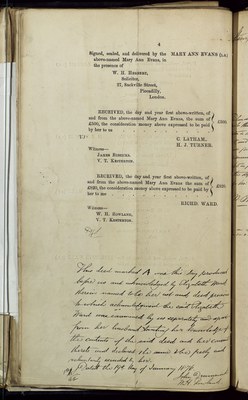 4
Signed, sealed, and delivered by the
above-named Mary Ann Evans, in
the presence of
MARY ANN EVANS (L.S.)
Solicitor,
27, Sackville Street,
Piccadilly,
London.
RECEIVED, the day and year first above-written, of
and from the above-named Mary Ann Evans, the sum of
£500, the consideration money above expressed to be paid
by her to us
£500.
C. LATHAM,
H. J. TURNER.
Witness—
JAMES
V. T.
RECEIVED, the day and year first above-written, of
and from the above-named Mary Ann Evans the sum of
the consideration money above expressed to be paid by
her to me
WARD
Witness—
W. H. ROWLAND,
V. T.
This deed marked A was this day produced
before us and acknowledged by Elizabeth Ward
therein named to be her act and deed previous
to which acknowledgment the said Elizabeth
Ward was examined by us separately and apart
from her husband touching her knowledge of
the contents of the said deed and her consent
thereto and declared the same to be freely and
voluntarily executed by her.
Dated the day of January 1870